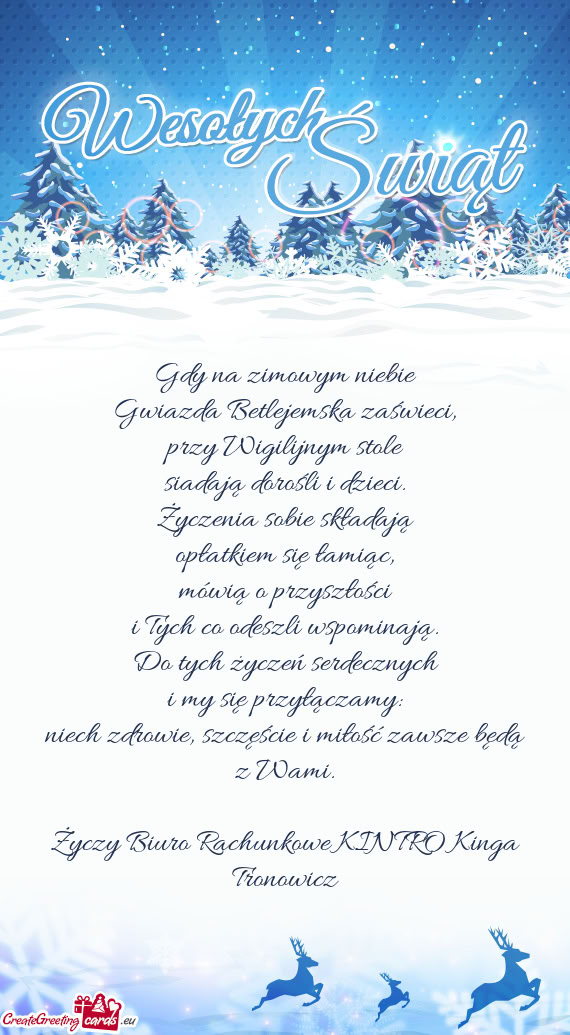 Wesołych
Świąt
Gdy na zimowym niebie
Gwiazda Betlejemska zaświeci,
przy Wigilijnym stole
siadają dorośli i dzieci.
Życzenia sobie składają
opłatkiem się łamiąc,
mówią o przyszłości
i Tych co odeszli wspominają.
Do tych życzeń serdecznych
i my się przyłączamy:
niech zdrowie, szczęście i miłość zawsze będą
z Wami.
Życzy Biuro Rachunkowe KINTRO Kinga
Tronowicz
CreateGreeting cards .eu